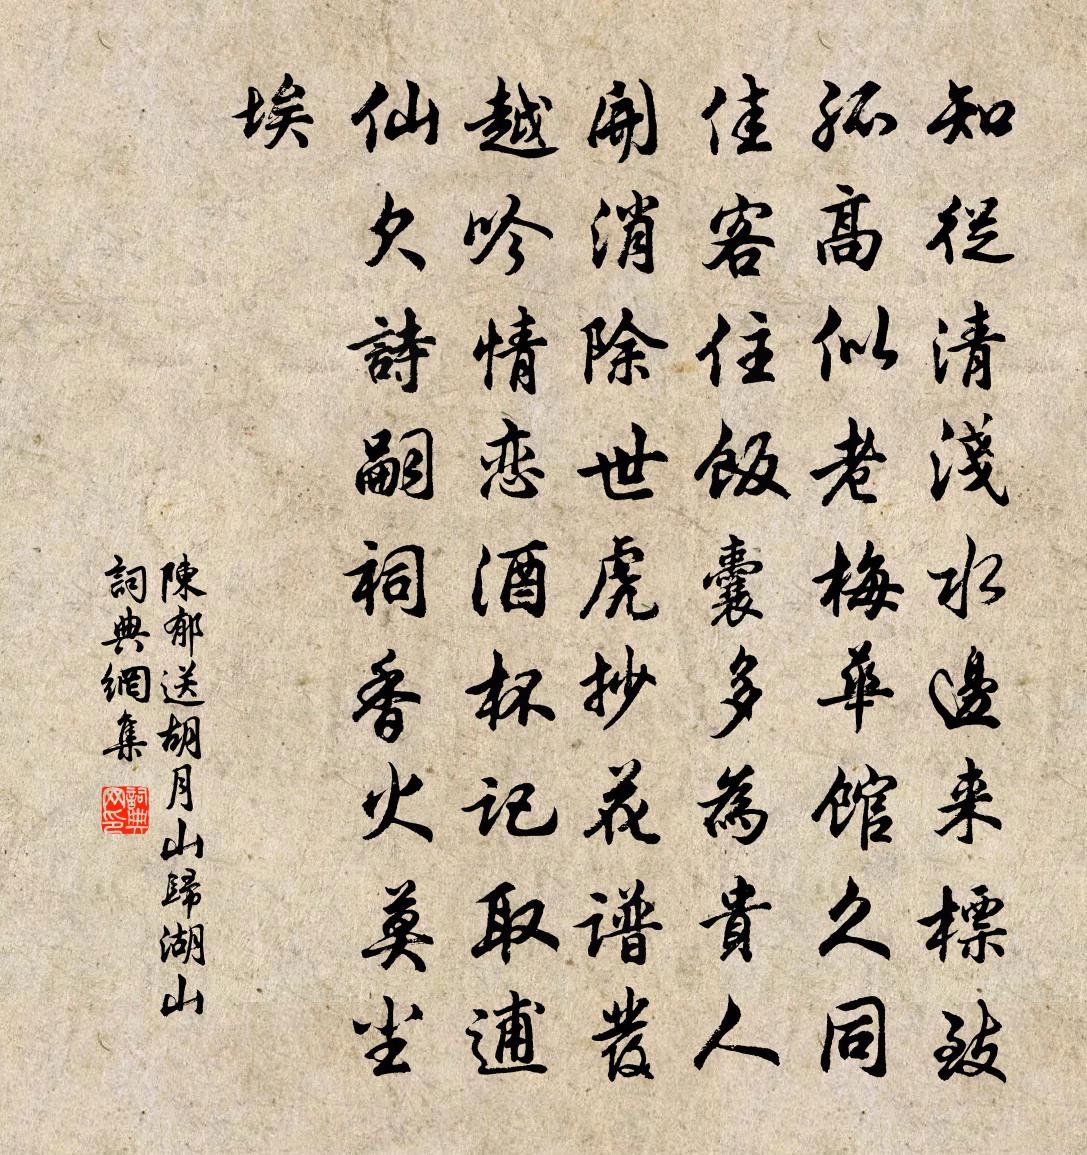 知從清淺水邊来標致
孤高似老梅華館久同
佳客住飯囊多為貴人
開消除世慮抄花譜發
越吟情恋酒杯記取逋
仙欠詩嗣祠香火莫尘
埃
陳郁送胡月山歸湖山
詞典網集
詞典网印